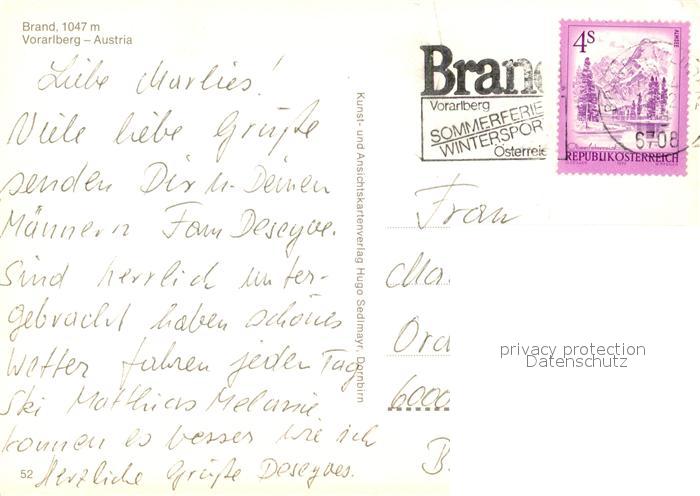 Brand, 1047 m
Vorarlberg – Austria
Liebe Marlies!
Viele liebe Grüße
senden Dir u. Deinen
Männern Fam Deseyve.
Sind herrlich unter-
gebracht haben schönes
Wetter fahren jeden Tag
Ski Matthias Melanie
können es besser wie ich
Herzliche Grüße Deseyves.
52
Kunst- und Ansichtskartenverlag Hugo Sedlmayr, Dornbirn
Bran
Vorarlberg
SOMMERFERIE
WINTERSPOR
Österreic
4S
ALMSEE
6708
REPUBLIK ÖSTERREICH
Frau
Ma
Ora
6000
B
privacy protection
Datenschutz